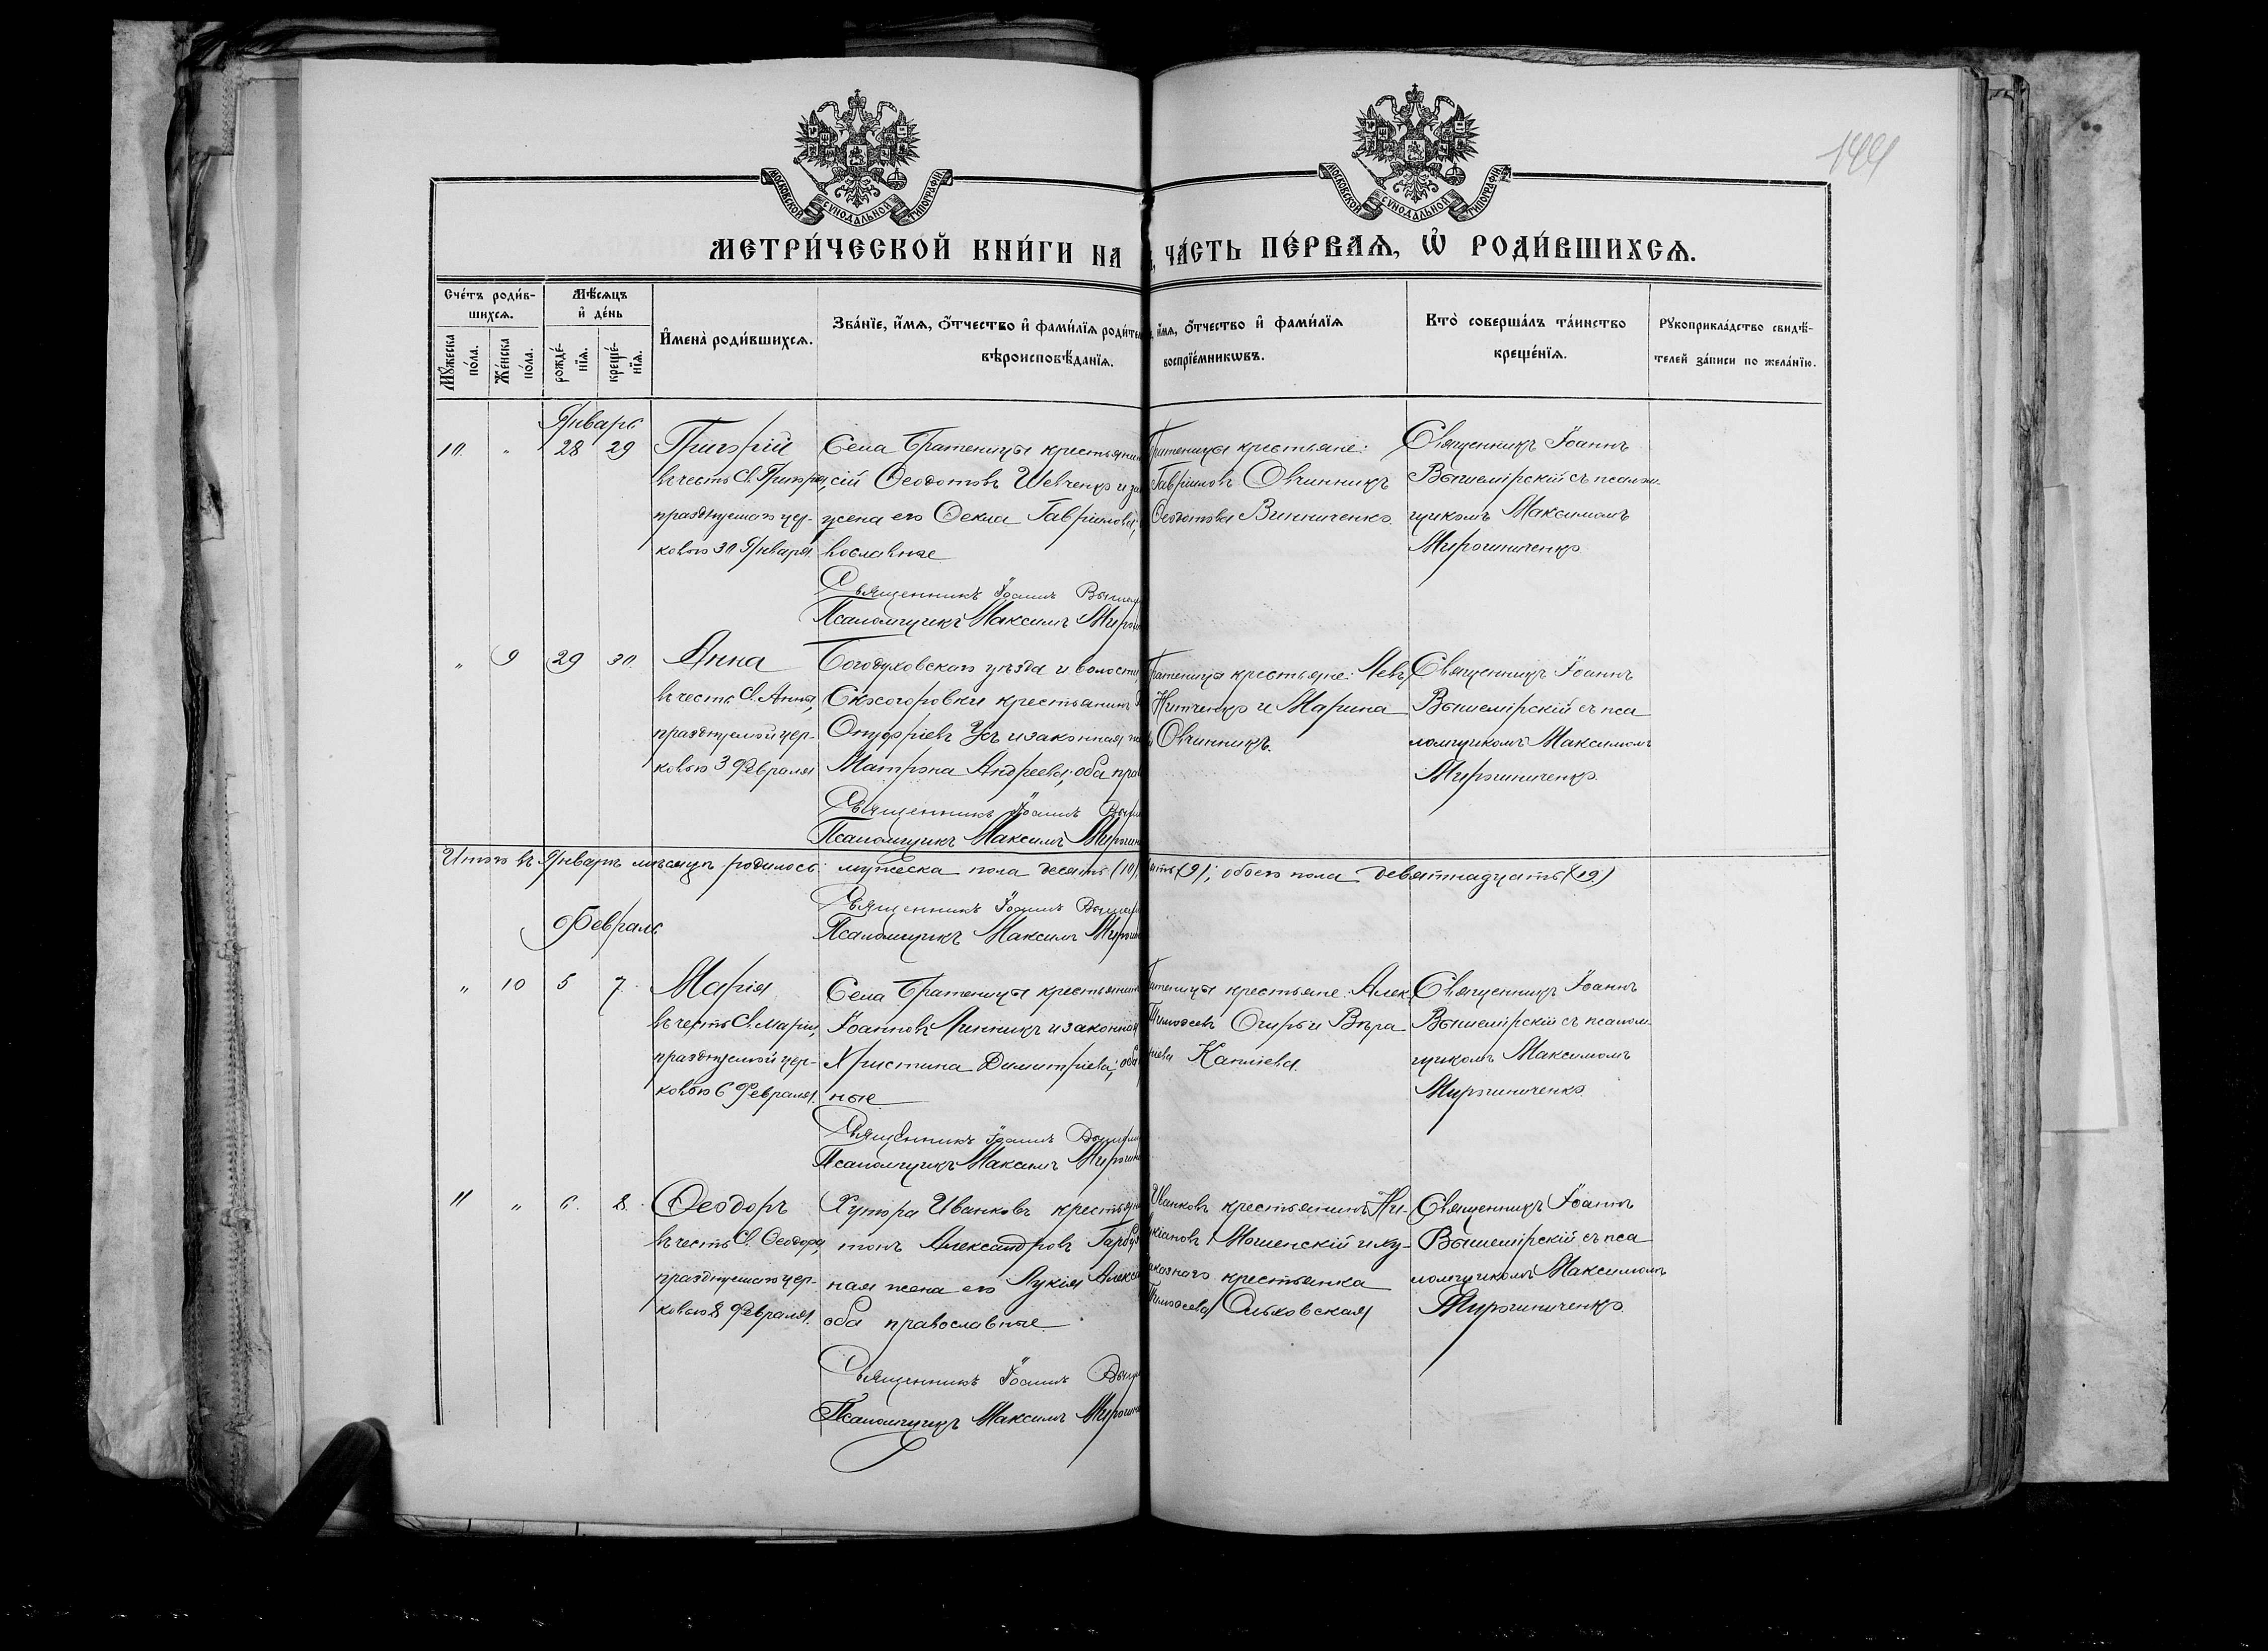 МОСКОВСКОЙ СУНОДАЛЬНОЙ ТИПОГРАФІИ
МОСКОВСКОЙ СУНОДАЛЬНОЙ ТИПОГРАФІИ
144
МЕТРИ́ЧЕСКОЙ КНИ́ГИ НА
ЧА́СТЬ ПЕ́РВАѦ, Ѡ҆ РОДИ́ВШИХСѦ.
Сче́тъ роди́в-
шихсѧ.
Мѣ́сѧцъ
и҆ де́нь
Мꙋ́жеска
по́ла.
Же́нска
по́ла.
рожде́-
нїѧ.
креще́-
нїѧ.
И҆мена̀ роди́вшихсѧ.
Зва́нїе, и҆́мѧ, ѻ҆́тчество и҆ фами́лїѧ роди́те
вѣроисповѣ́данїѧ.
и҆́мѧ, ѻ҆́тчество и҆ фами́лїѧ
воспрїе́мникѡвъ.
Кто̀ соверша́лъ та́инство
креще́нїѧ.
Рꙋкоприкла́дство свидѣ́-
телей за́писи по жела́нїю.
Январь
10 " 28 29 Григорій
въ честь Св. Григорія,
празднуемаго цер-
ковью 30 Января
Села Братеницы крестьянин
сій Ѳеодотовъ Шевченко и за
жена его Ѳекла Гавріилова,
вославные
Священникъ Іоаннъ Выше
Псаломщикъ Максимъ Мирош
Братеницы крестьяне:
Гавріиловъ Овчинникъ
Ѳеодотова Винниченко.
Священникъ Іоаннъ
Вышемірскій съ псалом-
щикомъ Максимомъ
Мирошниченко
" 9 29 30 Анна
въ честь Св. Анны,
празднуемой цер-
ковью 3 Февраля
Богодуховскаго уѣзда и волости,
Скосогоровки крестьянинъ
Онуфріевъ Усъ и законная же
Матрона Андреева, оба пра
Священникъ Іоаннъ Выше
Псаломщикъ Максимъ Мирошн
Братеницы крестьяне: Левъ
Нитченко и Марина
Овчинникъ.
Священникъ Іоаннъ
Вышемірскій съ пса
ломщикомъ Максимомъ
Мирошниченко
Итого въ Январѣ мѣсяцѣ родилось: мужеска пола десять (10),
ять (9); обоего пола девятнадцать (19)
Священникъ Іоаннъ Выше
Псаломщикъ Максимъ Мирошн
Февраль
" 10 5 7 Марія
въ честь Св. Маріи,
празднуемой цер-
ковью 6 Февраля.
Села Братеницы крестьянин
Іоанновъ Линникъ и законная
Христина Димитріева; оба
ные
Священникъ Іоаннъ Выше
Псаломщикъ Максимъ Мирошн
Братеницы крестьяне: Алек-
Тимоѳеевъ Огирь и Вѣра
Каплiева.
Священникъ Іоаннъ
Вышемірскій съ псалом-
щикомъ Максимомъ
Мирошниченко
11 " 6 8 Ѳеодоръ
въ честь Св. Ѳеодора,
празднуемаго цер-
ковью 8 Февраля.
Хутора Иванковъ крестьян
тонъ Александровъ Гарбуз
ная жена его Лукія Алекс
оба православные.
Священникъ Іоаннъ Выше
Псаломщикъ Максимъ Мирошн
Иванковъ крестьянинъ Ни-
Мошенскій и ху-
казнаго крестьянка
Тимоѳеева Ольховская
Священникъ Іоаннъ
Вышемірскій съ пса
ломщикомъ Максимомъ
Мирошниченко